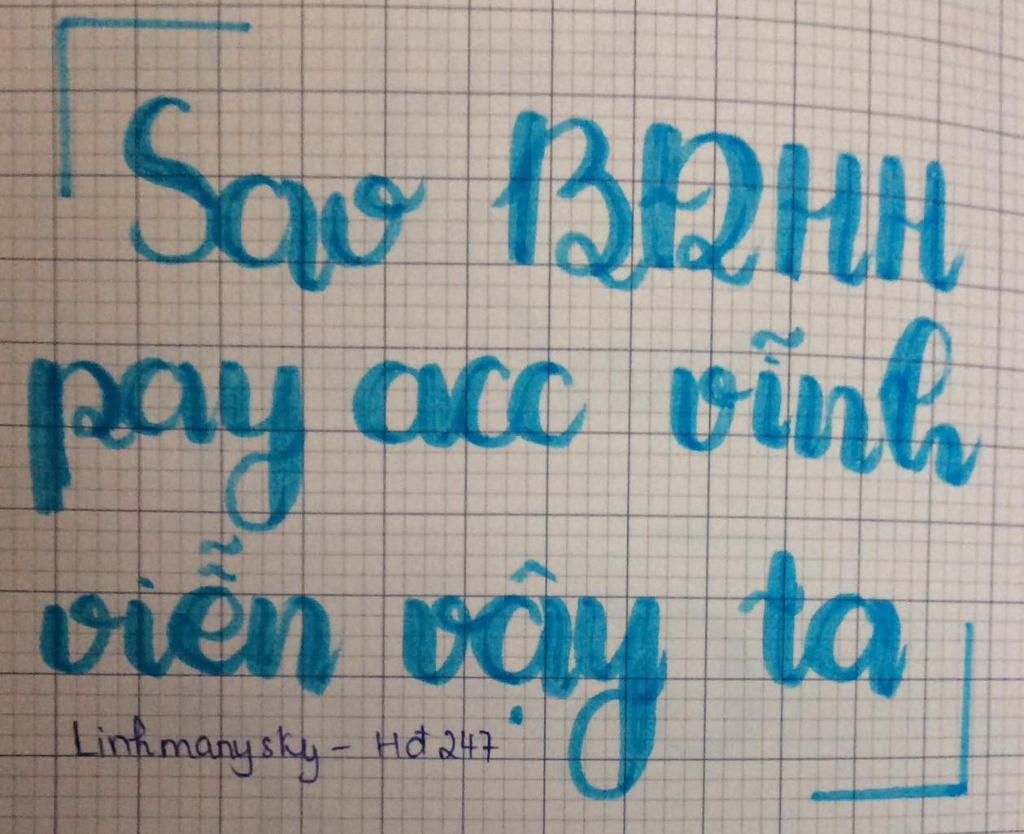 Sao BRHH
pay acc vĩnh
viễn vậy ta
Linhmanysky - Hđ247